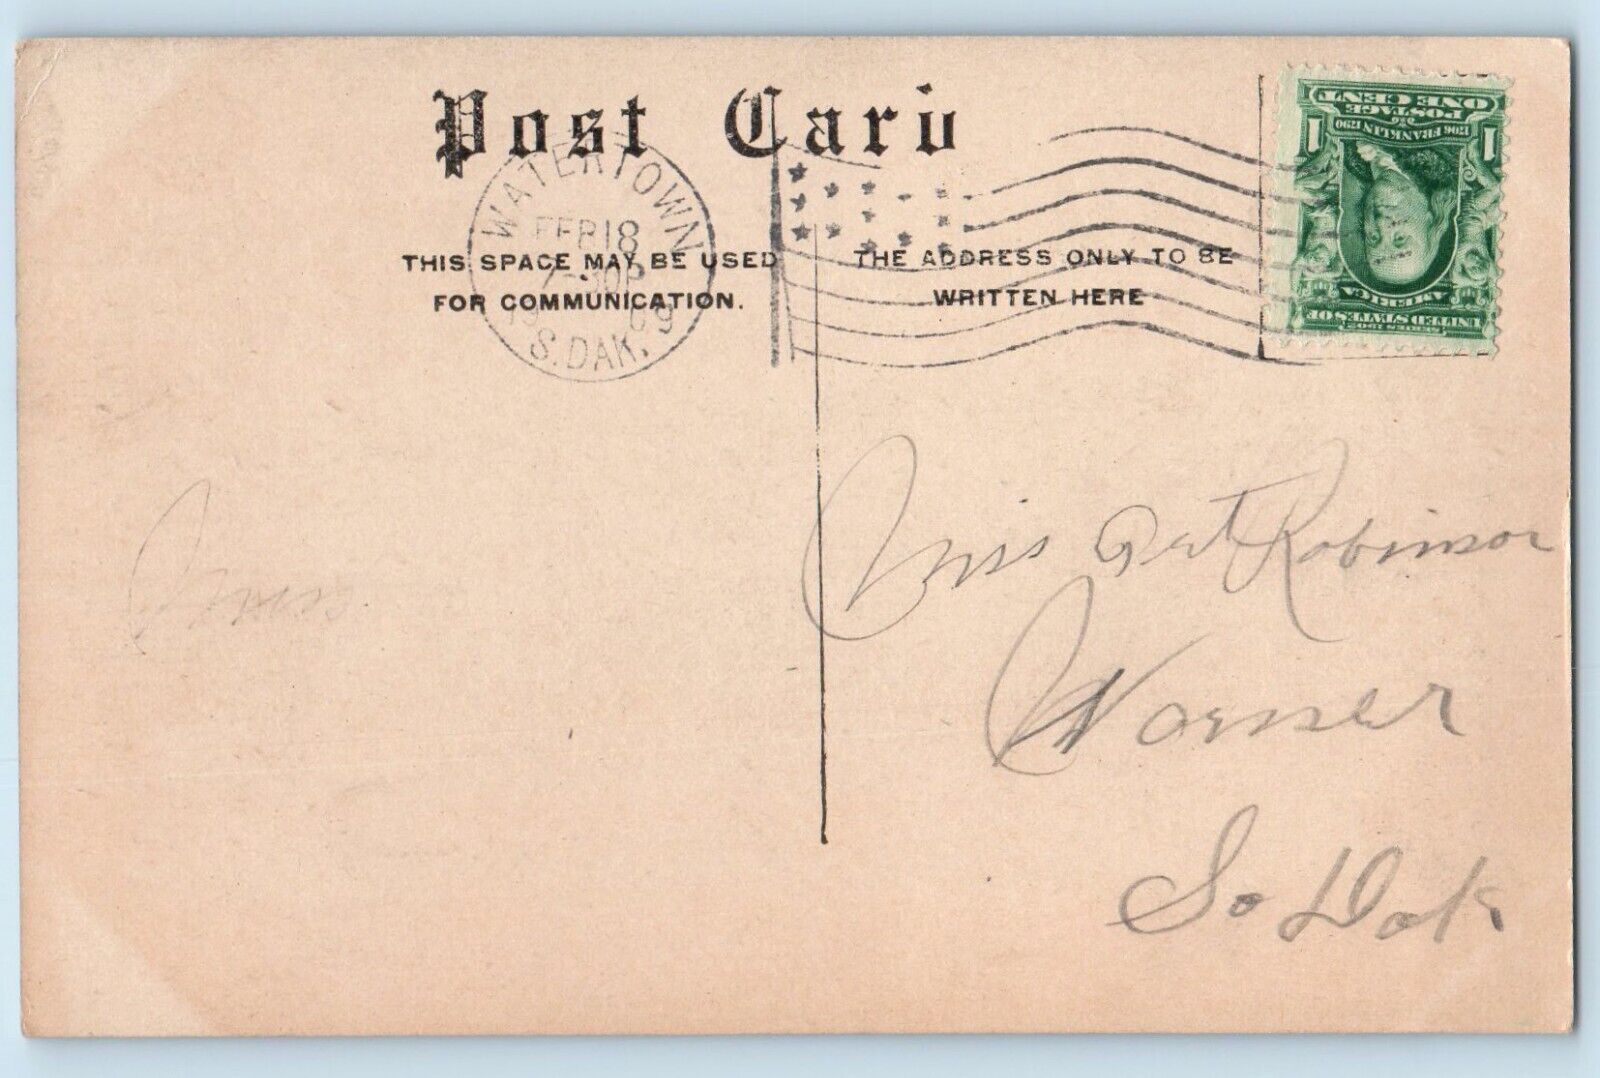 Post Card
WATERTOWN
FEB 18
09
S. DAK.
THIS SPACE MAY BE USED
FOR COMMUNICATION.
THE ADDRESS ONLY TO BE
WRITTEN HERE
1 ONE CENT 1
POSTAGE
1706 FRANKLIN 1790
AMERICA
UNITED STATES OF
SERIES 1902
Miss Robinson
So Dak